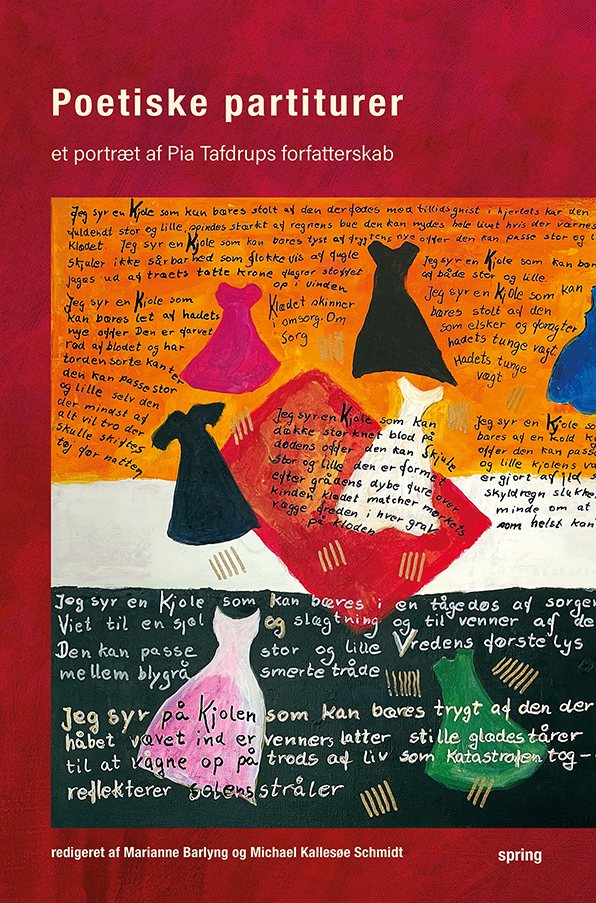 Poetiske partiturer
et portræt af Pia Tafdrups forfatterskab
Jeg syr en Kjole som kan bæres stolt af den der fødes med tillidsgnist i hjertets kar den
fuldendt stor og lille, spindes stærkt af regnens bue den kan nydes hele livet hvis der værnes
Klædet. Jeg syr en Kjole som kan bæres tyst af flygtens nye offer den kan passe stor og l
skjuler ikke sårbarhed som flokke vis af fugle
jages ud af træets tætte krone flagrer stoffet
op i vinden
Klædet skinner
i omsorg. Om
Sorg
Jeg syr en Kjole kan bær
af både stor og lille.
Jeg syr en Kjole som kan
bæres stolt af den
som elsker og foragter
hadets tunge vægt
Hadets tunge
vægt
Jeg syr en Kjole som
kan bæres let af hadets
nye offer Den er farvet
rød af blodet og har
torden sorte kanter
den kan passe stor
og lille selv den
der mindst af
alt vil tro der
skulle skiftes
tøj før natten
Jeg syr en Kjole som kan
dække størknet blod på
dødens offer den kan skjule
stor og lille den er formet
efter grådens dybe fure over
kinden klædet matcher mørkets
vægge freden i hver grav
på kloden
Jeg syr en Kjole so
bæres af en kold k
offer den kan passe
og lille kjolens væ
er gjort af ild s
skyldregn slukke
minde om at
som helst kan
Jeg syr en Kjole som kan bæres i en tågedøs af sorgen
Viet til en sjæl og slægtning og til venner af de
Den kan passe stor og lille Vredens første lys
mellem blygrå smerte tråde
Jeg syr på Kjolen som kan bæres trygt af den der
håbet vævet ind er venners latter stille glædestårer
til at vågne op på trods af liv som Katastrofen tog -
reflekterer solens stråler
redigeret af Marianne Barlyng og Michael Kallesøe Schmidt
spring